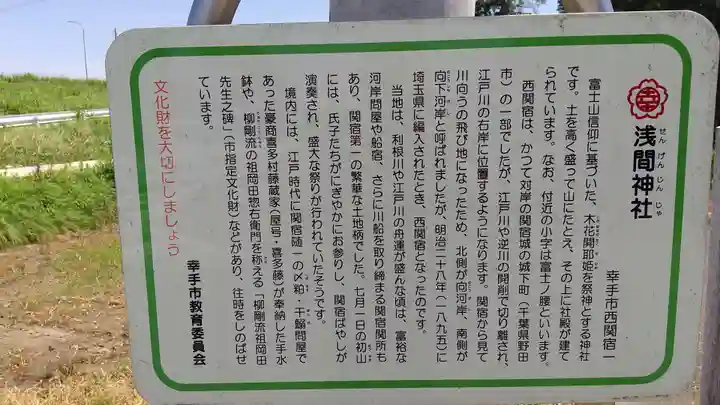 浅間神社
せんげんじんじゃ
幸手市西関宿一
富士山信仰に基づいた、木花開耶姫を祭神とする神社
です。土を高く盛って山にたとえ、その上に社殿が建て
られています。なお、付近の小字は富士ノ腰といいます。
西関宿は、かつて対岸の関宿城の城下町（千葉県野田
市）の一部でしたが、江戸川や逆川の開削で切り離され、
江戸川の右岸に位置するようになります。関宿から見て
川向うの飛び地になったため、北側が向河岸、南側が
向下河岸と呼ばれましたが、明治二十八年（一八九五）に
埼玉県に編入されたとき、西関宿となったのです。
当地は、利根川や江戸川の舟運が盛んな頃は、富裕な
河岸問屋や船宿、さらに川船を取り締まる関宿関所も
あり、関宿第一の繁華な土地柄でした。七月一日の初山
には、氏子たちがにぎやかにお参りし、関宿ばやしが
演奏され、盛大な祭りが行われていたそうです。
境内には、江戸時代に関宿随一の〆粕・干鰯問屋で
あった豪商喜多村藤蔵家（屋号・喜多藤）が奉納した手水
鉢や、柳剛流の祖岡田惣右衛門を称える「柳剛流祖岡田
先生之碑」（市指定文化財）などがあり、往時をしのばせ
ています。
幸手市教育委員会
文化財を大切にしましょう